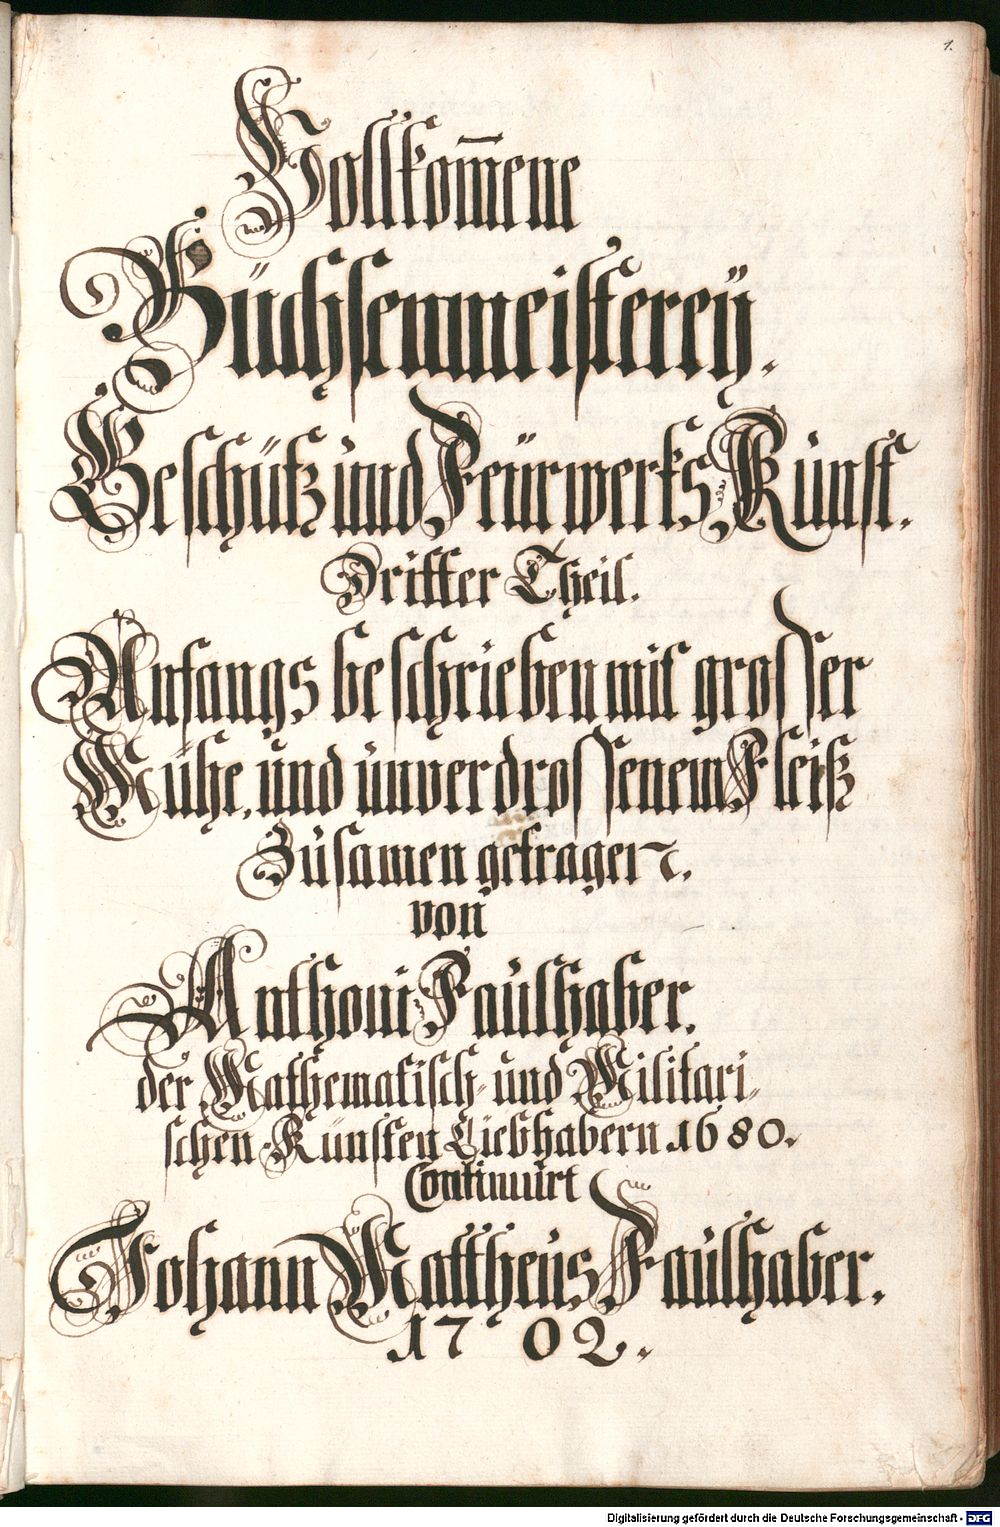 1.
Vollkom̄ene
Büchsenmeisterey.
Geschütz und Feürwerks Kunst.
Dritter Theil.
Anfangs beschrieben mit grosser
Mühe, und unverdrossenem Fleiß
Zusamen getragen.
von
Anthoni Faulhaber.
der Mathematisch- und Militari-
schen Künsten Liebhabern 1680.
Continuirt
Johann Mattheus Faulhaber.
1702.
Digitalisierung gefördert durch die Deutsche Forschungsgemeinschaft - DFG